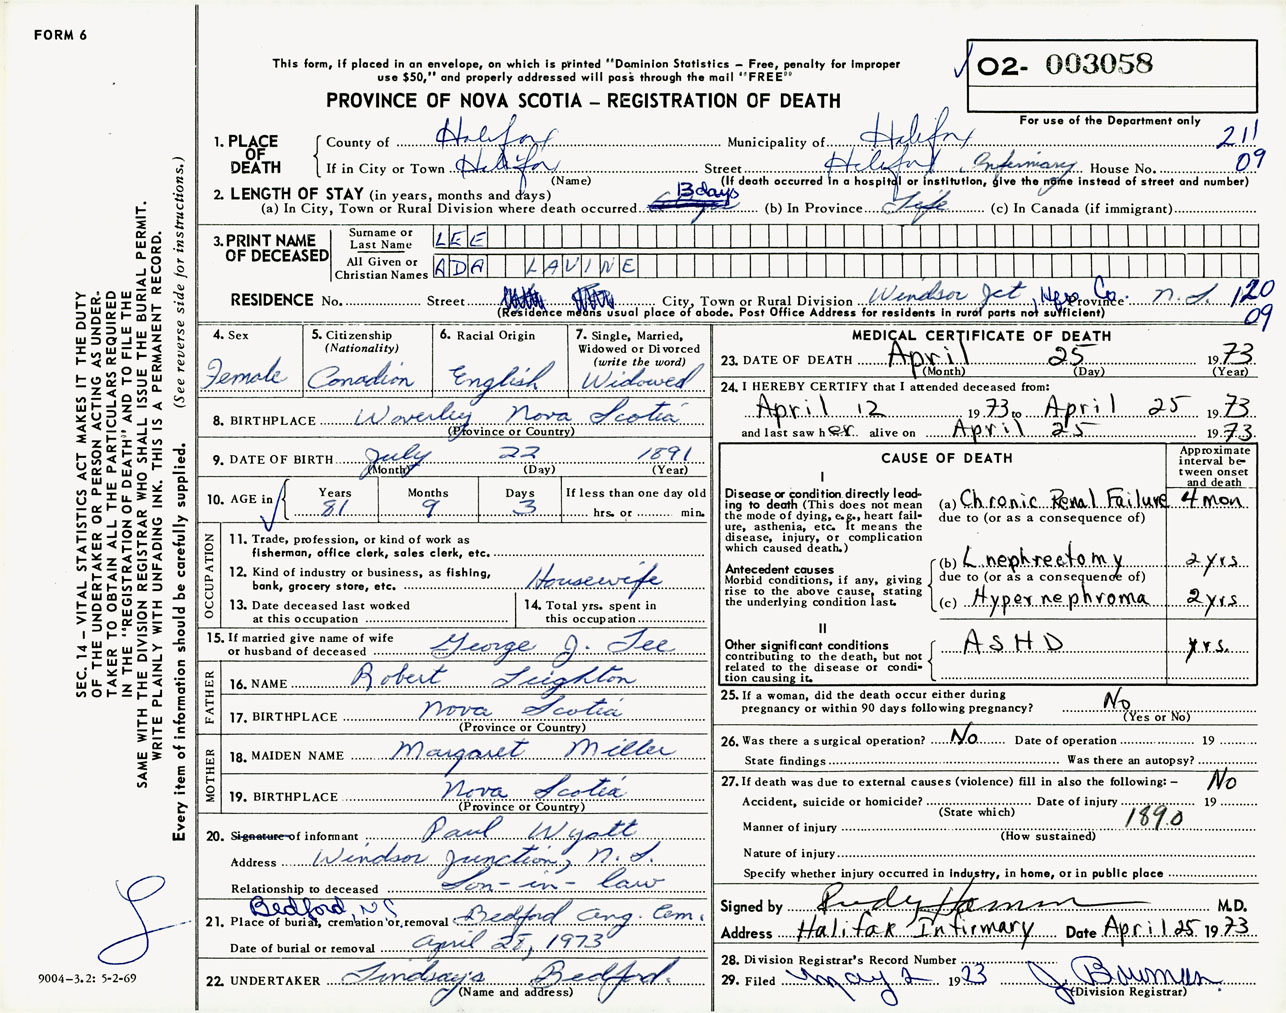 FORM 6
This form, if placed in an envelope, on which is printed "Dominion Statistics – Free, penalty for improper
use $50," and properly addressed will pass through the mail "FREE"
O2- 003058
PROVINCE OF NOVA SCOTIA – REGISTRATION OF DEATH
For use of the Department only
1. PLACE OF DEATH
County of Halifax Municipality of Halifax 211
If in City or Town Halifax Street Halifax Infirmary House No. 09
(Name) (If death occurred in a hospital or institution, give the name instead of street and number)
2. LENGTH OF STAY (in years, months and days) 13 days
(a) In City, Town or Rural Division where death occurred (b) In Province Life (c) In Canada (if immigrant)
3. PRINT NAME OF DECEASED
Surname or Last Name LEE
All Given or Christian Names ADA LAVINE
RESIDENCE No. Street City, Town or Rural Division Windsor Jct, Hfx Co. Province N.S. 120
(Residence means usual place of abode. Post Office Address for residents in rural parts not sufficient) 09
4. Sex
Female
5. Citizenship
(Nationality)
Canadian
6. Racial Origin
English
7. Single, Married,
Widowed or Divorced
(write the word)
Widowed
8. BIRTHPLACE Waverley Nova Scotia
(Province or Country)
9. DATE OF BIRTH July 22 1891
(Month) (Day) (Year)
10. AGE in Years Months Days If less than one day old
81 9 3 hrs. or min.
OCCUPATION
11. Trade, profession, or kind of work as
fisherman, office clerk, sales clerk, etc.
12. Kind of industry or business, as fishing,
bank, grocery store, etc. Housewife
13. Date deceased last worked
at this occupation
14. Total yrs. spent in
this occupation
15. If married give name of wife
or husband of deceased George J. Lee
FATHER
16. NAME Robert Leighton
17. BIRTHPLACE Nova Scotia
(Province or Country)
MOTHER
18. MAIDEN NAME Margaret Miller
19. BIRTHPLACE Nova Scotia
(Province or Country)
20. Signature of informant Paul Wyatt
Address Windsor Junction, N.S.
Relationship to deceased Son-in-law
Bedford NS
21. Place of burial, cremation or removal Bedford Ang. Cem.
Date of burial or removal April 27, 1973
22. UNDERTAKER Lindsay's Bedford.
(Name and address)
MEDICAL CERTIFICATE OF DEATH
23. DATE OF DEATH April 25 1973
(Month) (Day) (Year)
24. I HEREBY CERTIFY that I attended deceased from:
April 12 1973 to April 25 1973
and last saw her alive on April 25 1973
CAUSE OF DEATH
Approximate
interval be-
tween onset
and death
I
Disease or condition directly lead-
ing to death (This does not mean
the mode of dying, e.g., heart fail-
ure, asthenia, etc. It means the
disease, injury, or complication
which caused death.)
(a) Chronic Renal Failure 4 mon
due to (or as a consequence of)
Antecedent causes
Morbid conditions, if any, giving
rise to the above cause, stating
the underlying condition last.
(b) L nephrectomy 2 yrs
due to (or as a consequence of)
(c) Hypernephroma 2 yrs
II
Other significant conditions
contributing to the death, but not
related to the disease or condi-
tion causing it.
ASHD yrs.
25. If a woman, did the death occur either during
pregnancy or within 90 days following pregnancy? No
(Yes or No)
26. Was there a surgical operation? No Date of operation 19
State findings Was there an autopsy?
27. If death was due to external causes (violence) fill in also the following:– No
Accident, suicide or homicide? Date of injury 19
(State which)
Manner of injury 189.0
(How sustained)
Nature of injury
Specify whether injury occurred in industry, in home, or in public place
Signed by M.D.
Address Halifax Infirmary Date April 25 1973
28. Division Registrar's Record Number
29. Filed May 2 1973 J. Bowman
(Division Registrar)
SEC. 14 – VITAL STATISTICS ACT MAKES IT THE DUTY
OF THE UNDERTAKER OR PERSON ACTING AS UNDER-
TAKER TO OBTAIN ALL THE PARTICULARS REQUIRED
IN THE "REGISTRATION OF DEATH" AND TO FILE THE
SAME WITH THE DIVISION REGISTRAR WHO SHALL ISSUE THE BURIAL PERMIT.
WRITE PLAINLY WITH UNFADING INK. THIS IS A PERMANENT RECORD.
Every item of information should be carefully supplied. (See reverse side for instructions.)
9004-3.2: 5-2-69